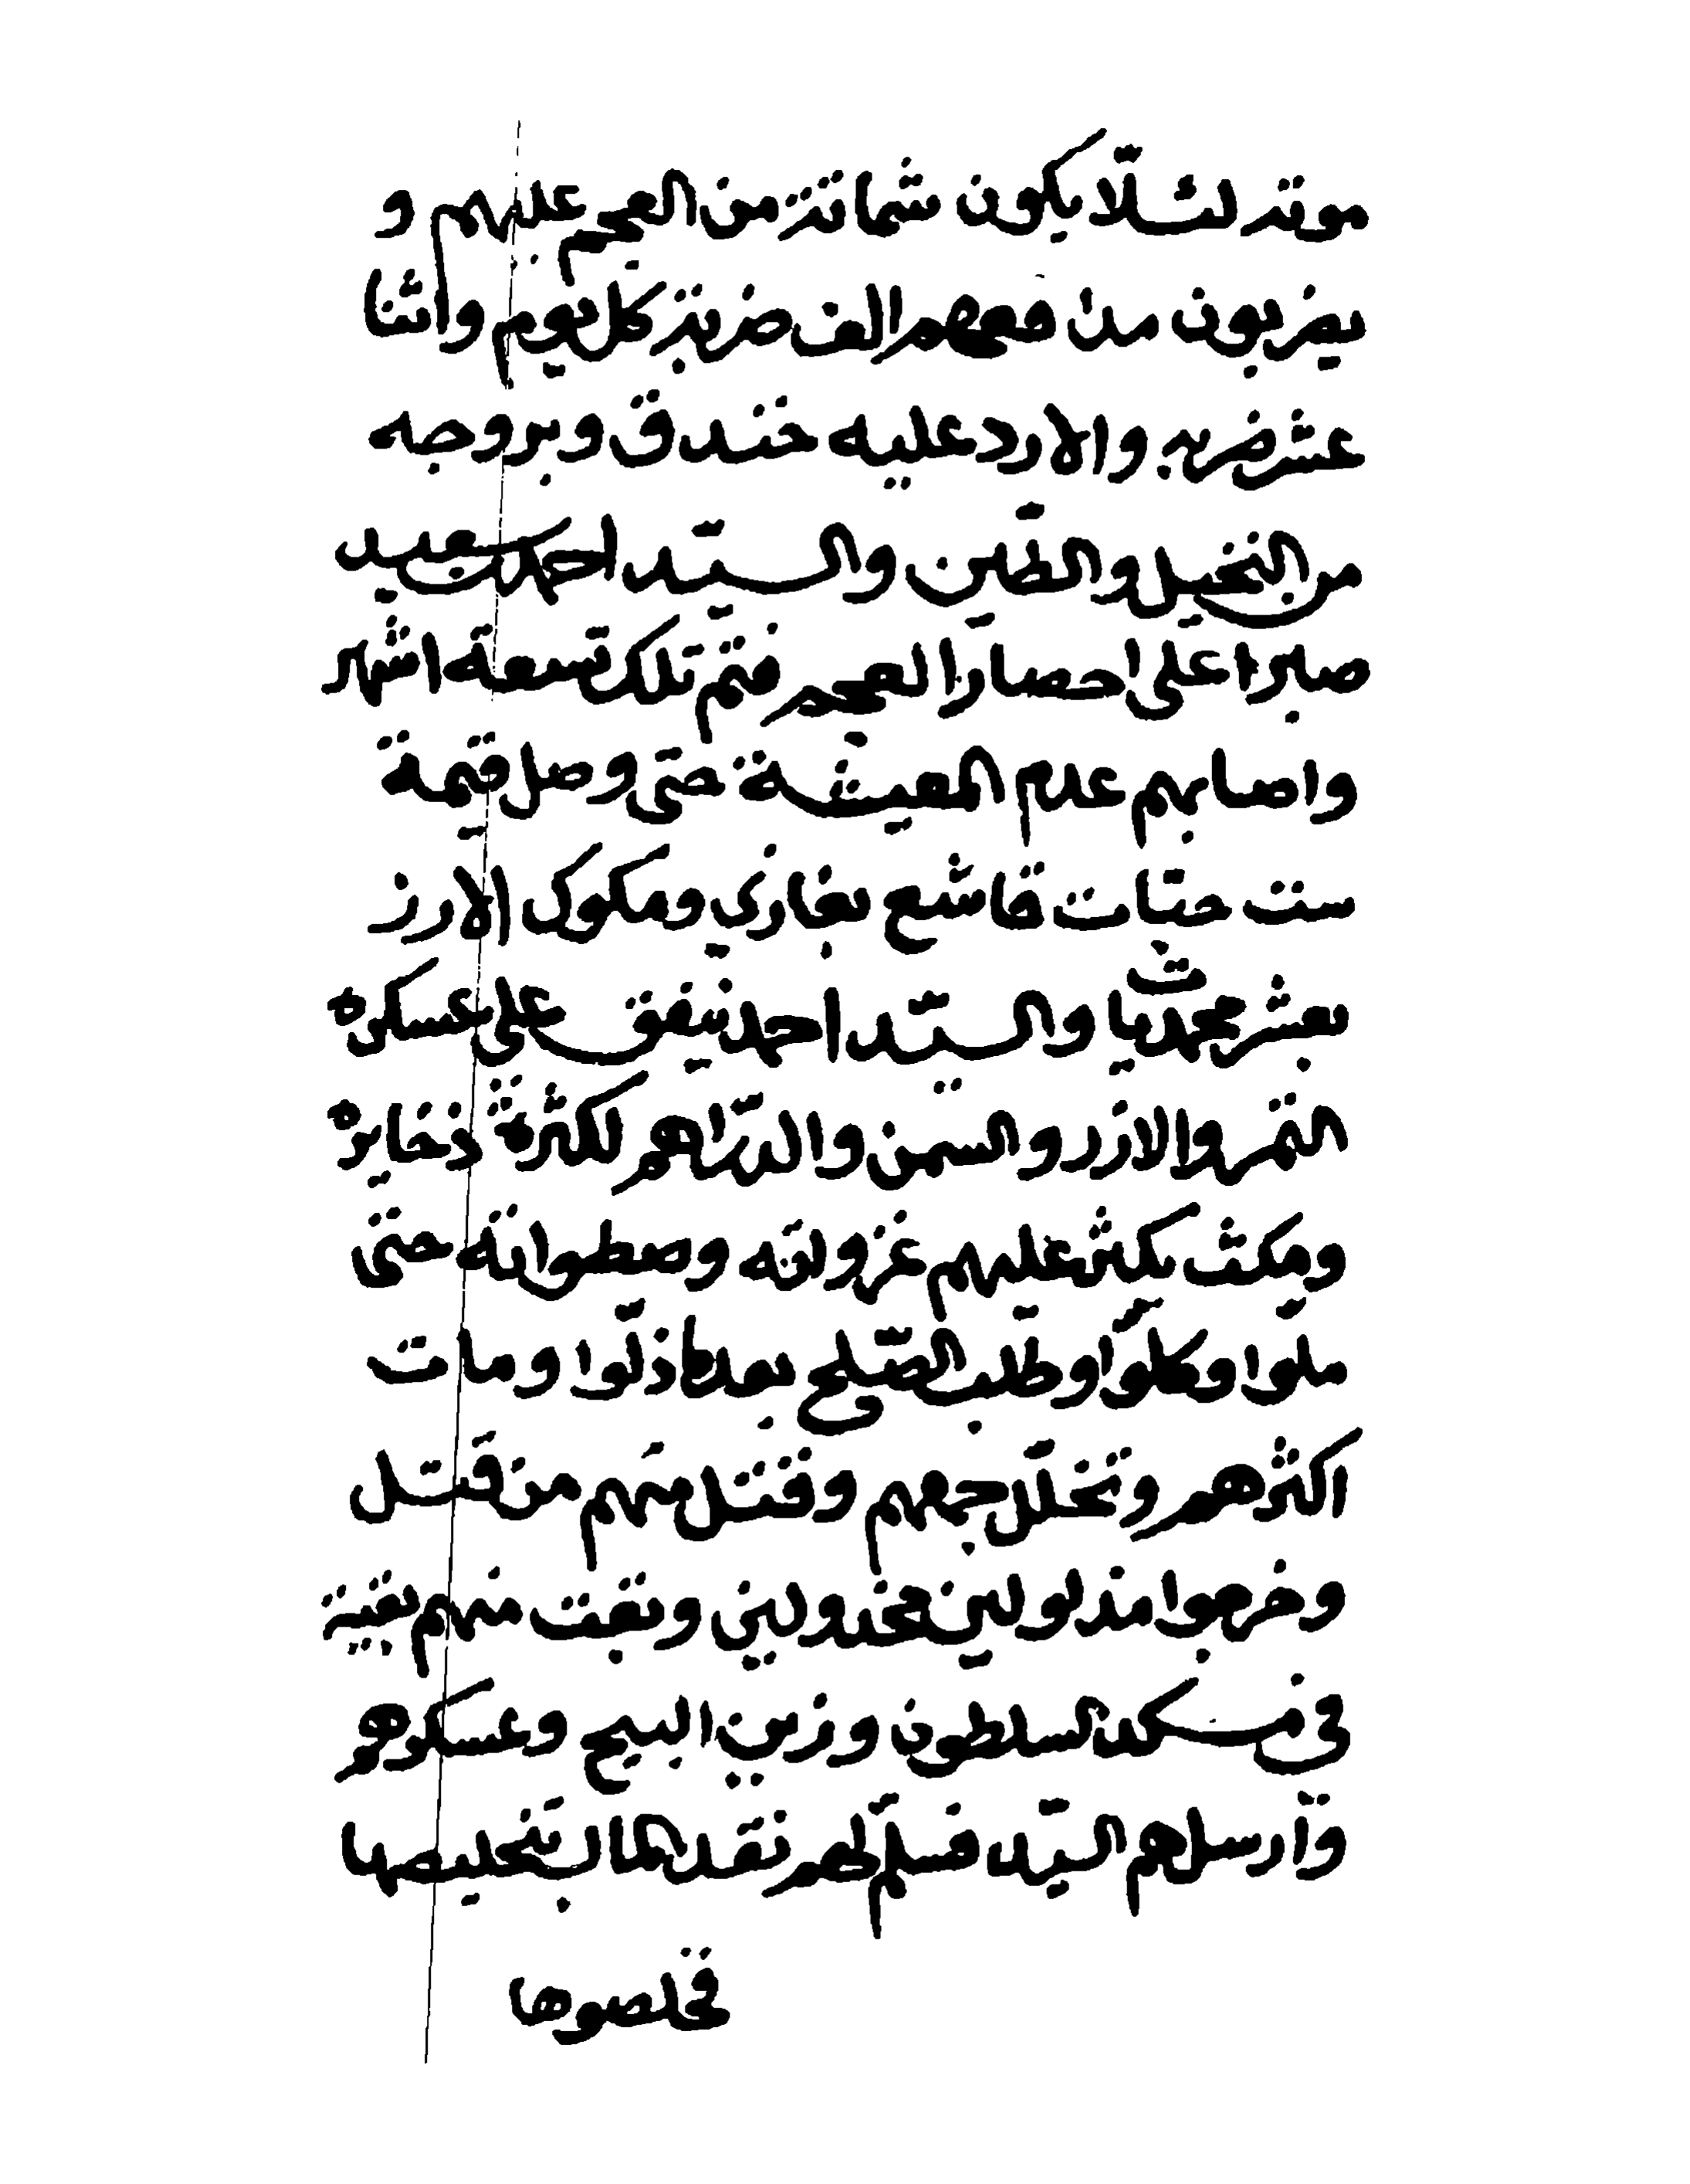 موته لئلّا يكون شماتة من العجم عليهم و
يضربون مدافعهم الف ضربة كل يوم واثنا
عشر ضربه والارد عليه خندق وبروجه
من النخيل والطّين والسيّد احمد بن سعيد
صابرا على احصار العجم فتم تلك تسعة اشهر
واصابهم عدم المعيشة حتى وصل قيمة
ست حبّات قاشع بغازي ومكوك الارز
بعشر محمديات والسيّد احمد ينفق على عسكره
التمر والارز والسمن والدّراهم لكثرة ذخايره
ومكث يكثر عليهم غزواته وصطواته حتى
ملوا وكلّوا وطلب الصّلح بعدما ذلّوا ومات
اكثرهم وتخلّل جمعهم وقتل منهم من قتل
وخرجوا مذلولين مخذولين وبقت منهم بقية
في مسكد السلطون وزين البيح وعسكرهم
وأرسلهم السيّد فسلّم لهم نقد المال بتخليصها
فخلصوها